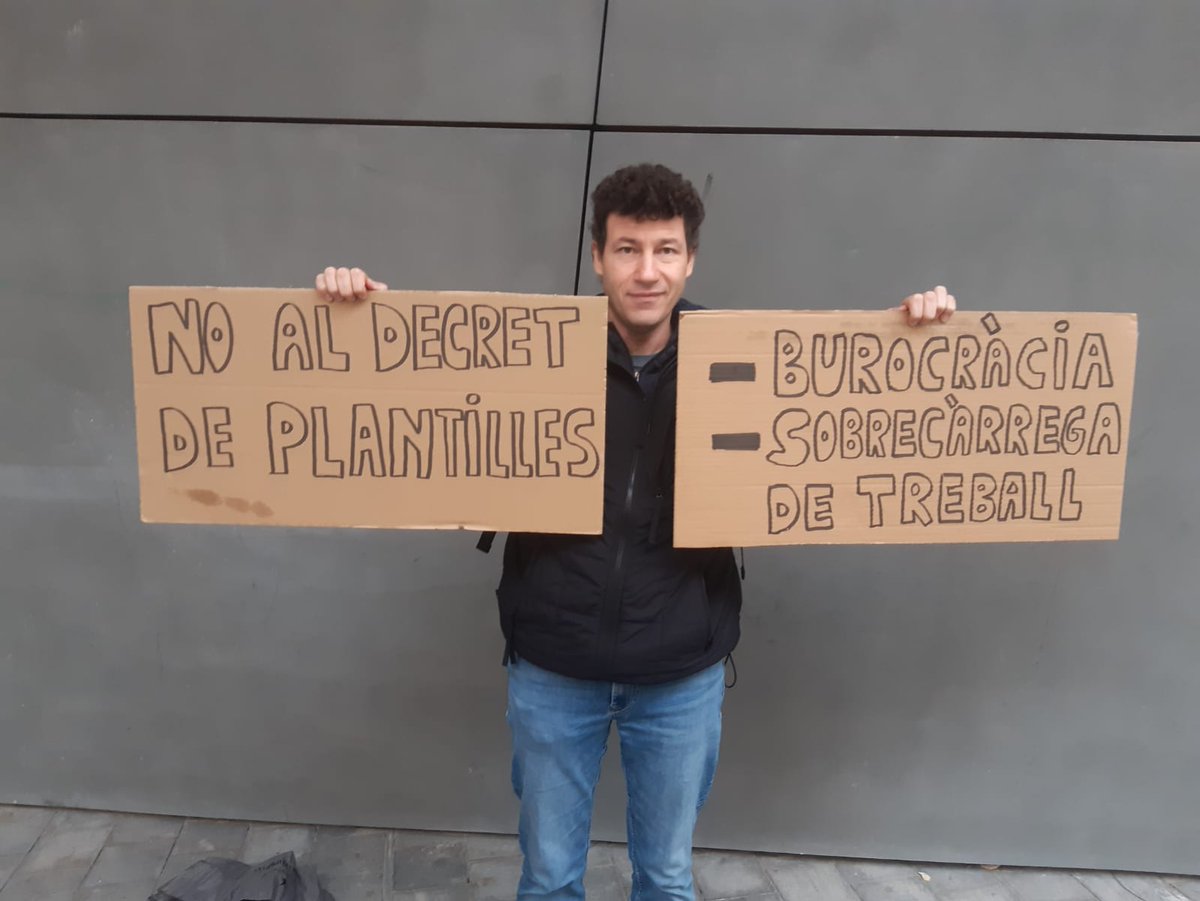 NO AL DECRET
DE PLANTiLLES
- BUROCRÀCiA
- SOBRECÀRREGA
DE TREBALL